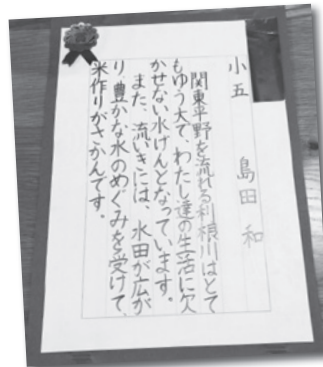 小五 島田 和
関東平野を流れる利根川はとて
もゆう大で、わたし達の生活に欠
かせない水げんとなっています。
また、流いきには、水田が広が
り、豊かな水のめぐみを受けて、
米作りがさかんです。